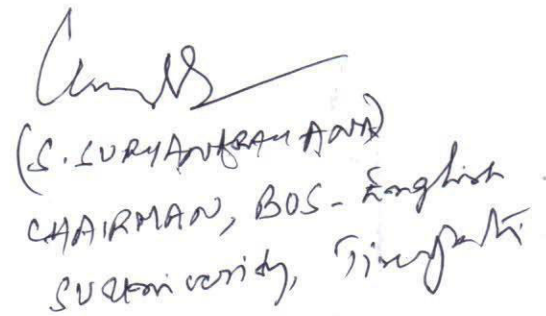 (S. SURYANARAYANA)
CHAIRMAN, BOS - English
SVUniversity, Tirupati